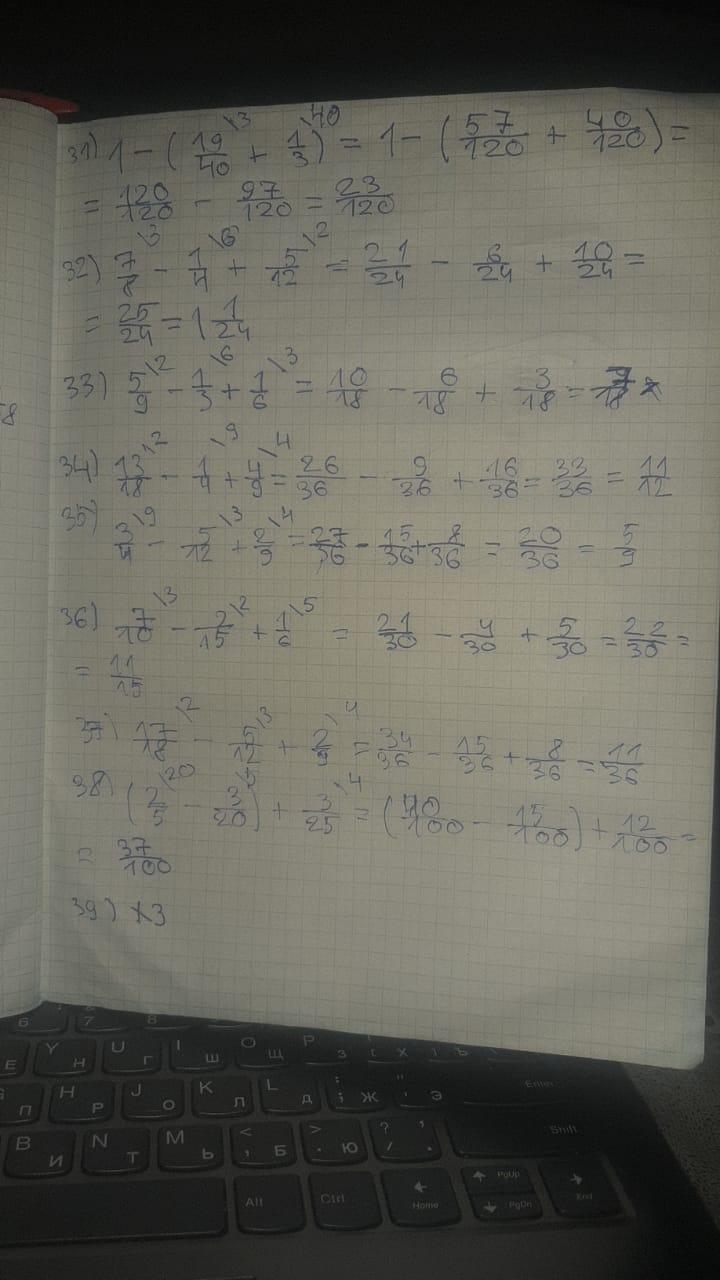 31) 1 - (19/40 \3 + 1/3 \40) = 1 - (57/120 + 40/120) =
= 120/120 - 97/120 = 23/120
32) 7/8 \3 - 1/4 \6 + 5/12 \2 = 21/24 - 6/24 + 10/24 =
= 25/24 = 1 1/24
33) 5/9 \2 - 1/3 \6 + 1/6 \3 = 10/18 - 6/18 + 3/18 = 7/18
34) 13/18 \2 - 1/4 \9 + 4/9 \4 = 26/36 - 9/36 + 16/36 = 33/36 = 11/12
35) 3/4 \9 - 5/12 \3 + 2/9 \4 = 27/36 - 15/36 + 8/36 = 20/36 = 5/9
36) 7/10 \3 - 2/15 \2 + 1/6 \5 = 21/30 - 4/30 + 5/30 = 22/30 =
= 11/15
37) 17/18 \2 - 5/12 \3 + 2/9 \4 = 34/36 - 15/36 + 8/36 = 11/36
38) (2/5 \20 - 3/20 \5) + 3/25 \4 = (40/100 - 15/100) + 12/100 =
= 37/100
39) x3
6 7 8
Е Y Н U Г I Ш O Щ P З [ Х ] Ъ
П H Р J О K Л L Д ; Ж " ' Э Enter
В И N Т M Ь < , Б > . Ю ? / , . Shift
Alt Ctrl ← Home ↑ PgUp ↓ PgDn → End